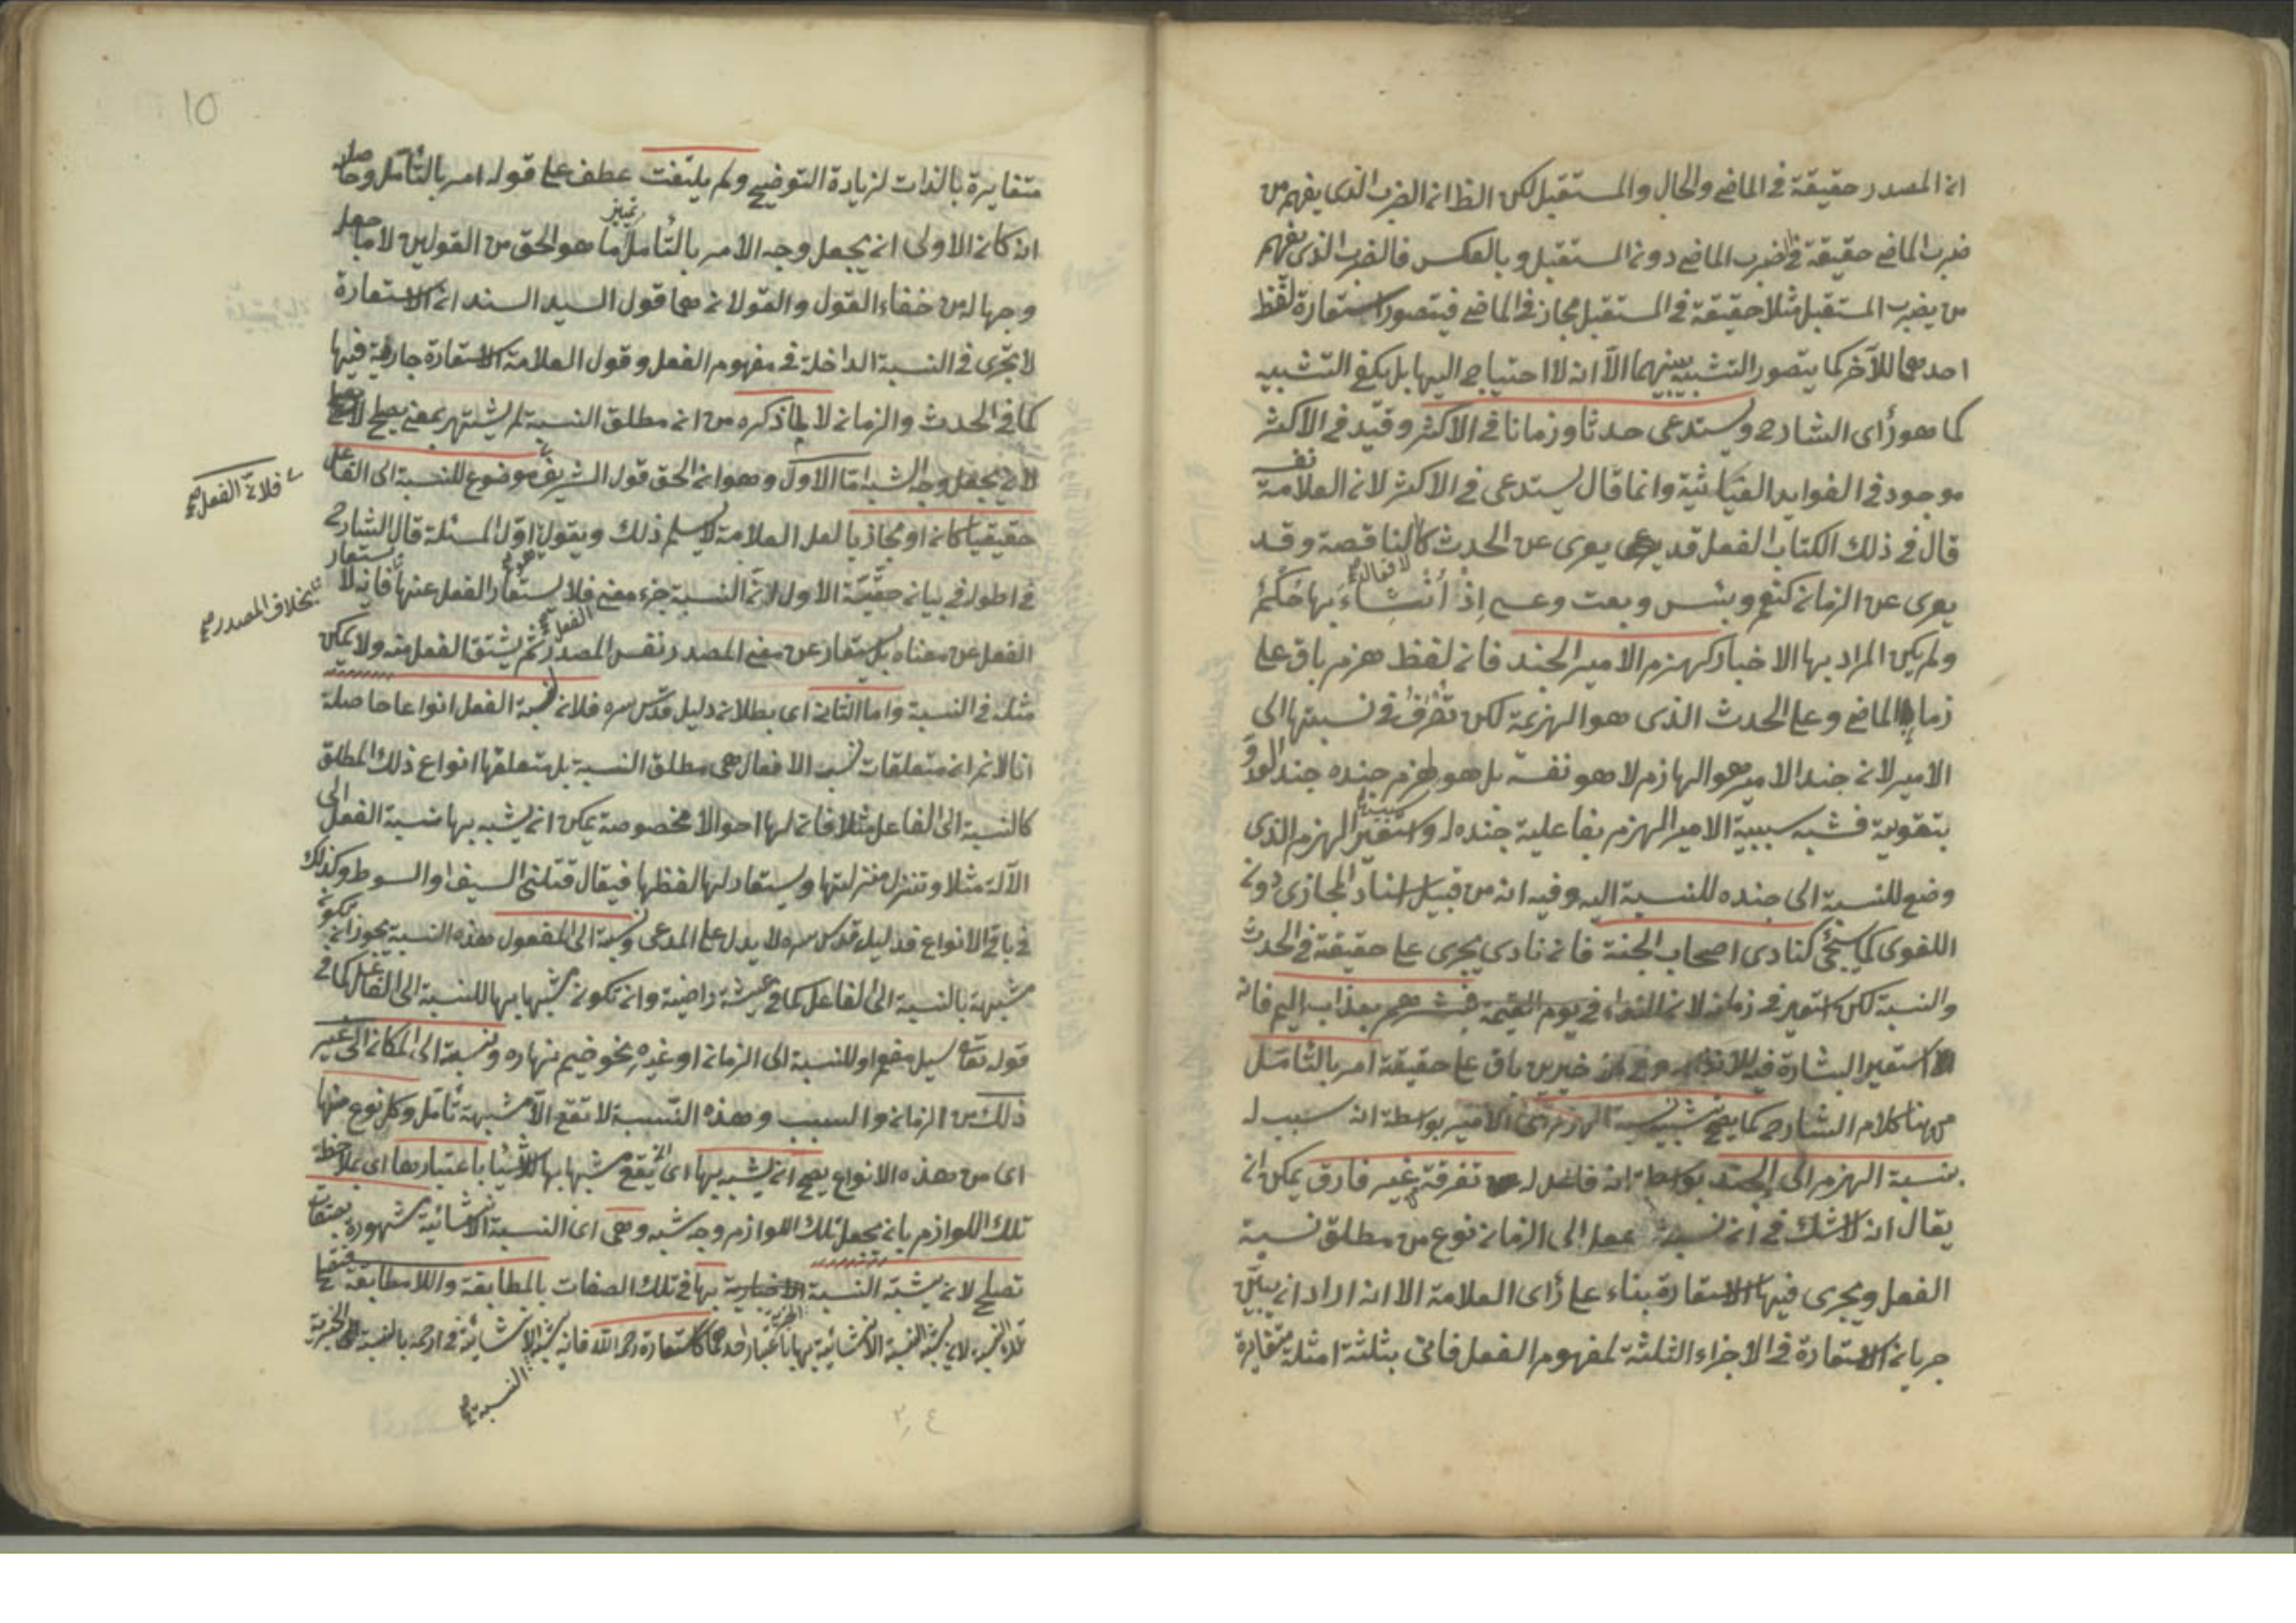 ان المصدر حقيقة في الماضي والحال والمستقبل لكن الظ ان الضرب الذى يفهم من
ضرب الماضي حقيقة في ضرب الماضي دون المستقبل وبالعكس فالضرب الذى يفهم
من يضرب المستقبل مثلا حقيقة في المستقبل مجاز في الماضي فيتصور استعارة لفظ
احدهما للآخر كما يتصور التشبيه بينهما الا انه لا احتياج اليها بل يكفي التشبيه
كما هو رأى الشارح ويستدعى حدثا وزمانا في الاكثر وقيد في الاكثر
موجود في الفوايد الغياثية وانما قال يستدعى في الاكثر لان العلامة نفسه
قال في ذلك الكتاب الفعل قد يعرى عن الحدث كالناقصة وقد
يعرى عن الزمان كنعم وبئس وبعت وعسى اذ انشاء بها حكم
ولم يكن المراد بها الاخبار كهزم الامير الجند فان لفظ هزم باق على
زمان الماضي وعلى الحدث الذى هو الهزيمة لكن تصرف في نسبتها الى
الامير لان جند الامير هو الهازم لا هو نفسه بل هو هزم جنده جند العدو
بتقويته فشبه سببية الامير الهزم بفاعلية جنده له واستعير الهزم الذى
وضع للنسبة الى جنده للنسبة اليه وفيه انه من قبيل اسناد المجازى دون
اللغوى كما سيجئ كنادى اصحاب الجنة فان نادى يجرى على حقيقة في الحدث
والنسبة لكن استعير في زمانه لان النداء في يوم القيمة فبشرهم بعذاب اليم فانه
استعير البشارة فيه للانذار وفي خيرين باق على حقيقة امر بالتأمل
من هنا كلام الشارح كما يصح تشبيه نسبة الهزم الى الامير بواسطة انه سبب له
بنسبة الهزم الى الجند بواسطة انه فاعل له تفرقة غير فارق يمكن ان
يقال انه لا شك في ان نسبة عمل الى الزمان نوع من مطلق نسبة
الفعل ويجرى فيها الاستعارة بناء على رأى العلامة الا انه اراد ان يبين
جريان الاستعارة في الاجزاء الثلثة لمفهوم الفعل فاتى بثلثة امثلة متغايرة
10
متغايرة بالذات لزيادة التوضيح ولم يلتفت عطف على قوله امر بالتأمل وحاصله
ان كان الاولى ان يجعل وجه الامر بالتأمل تمييز ما هو الحق من القولين لا ما جعل
وجها له من خفاء القول والقولان هما قول السيد السند ان الاستعارة
لا تجرى في النسبة الداخلة في مفهوم الفعل وقول العلامة الاستعارة جارية فيها
كما في الحدث والزمان لا لما ذكره من ان مطلق النسبة لم يشتهر بمعنى يصلح
لان يجعل وجه الشبه اما الاول وهو ان الحق قول الشريف موضوع للنسبة الى الفاعل
فلان الفعل صح
حقيقيا كان او مجازيا لعل العلامة لا يسلم ذلك ويقول اول المسئلة قال الشارح
في اطوله في بيان حقية الاول لان النسبة جزء معنى فلا يستعار الفعل عنها فانه لا يستعار
بخلاف المصدر صح
الفعل عن معناه بل يستعار عن معنى المصدر نفس المصدر ثم يشتق الفعل منه ولا يمكن
مثله في النسبة واما الثاني اى بطلان دليل قدس سره فلان لنسبة الفعل انواعا حاصلة
انا لانم ان متعلقات نسب الافعال هى مطلق النسبة بل متعلقها انواع ذلك المطلق
كالنسبة الى الفاعل مثلا فان لها احوالا مخصوصة يمكن ان يشبه بها نسبة الفعل الى
الآلة مثلا وتنزل منزلتها ويستعار لها لفظها فيقال قتلني السيف او السوط وكذلك
في باقى الانواع فدليل قدس سره لا يدل على المدعى ونسبة الى المفعول هذه النسبة يجوز ان تكون
شبيهة بالنسبة الى الفاعل كما في عيشة راضية وان تكون مشبها بها للنسبة الى الفاعل كما في
قوله تعالى سيل مفعم او للنسبة الى الزمان او غيره نحو ضيم نهاره ونسبة الى المكان الى غير
ذلك من الزمان والسبب وهذه النسبة لا تقع الا مشبهة تأمل وكل نوع منها
اى من هذه الانواع يصح ان يشبه بها اى ان يقع مشبها بها باعتبارها اى بملاحظة
تلك اللوازم بان يجعل تلك اللوازم وجه شبه وهى اى النسبة الانشائية مشهورة بصفات
تصلح لان يشبه النسبة الاخبارية بها في تلك الصفات بالمطابقة واللامطابقة
النسبة صح